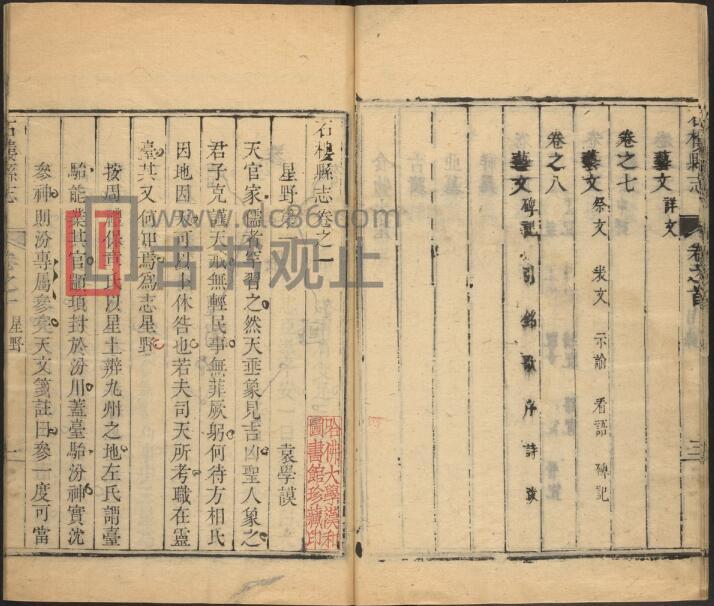 藝文 詳文
卷之七
藝文 祭文 示諭 看語 碑記
卷之八
藝文 碑記 引 銘 歌 序 詩 跋
石樓縣志 卷之首 三
石樓縣志卷之一
星野
袁學謨
天官家儒者罕習之然天垂象見吉凶聖人象之
君子克謹天戒無輕民事無菲厥躬何待方相氏
因地因天可以卜休咎也若夫司天所考職在靈
臺其又何知焉為志星野
按周禮保章氏以星土辨九州之地左氏謂臺
駘能業其官顓頊封於汾川蓋臺駘汾神實沈
參神則汾專屬參矣天文箋註曰參一度可當
石樓縣志 卷之一 星野 一
哈佛大學漢和
圖書館珍藏印
www.dc86.com
古书观止